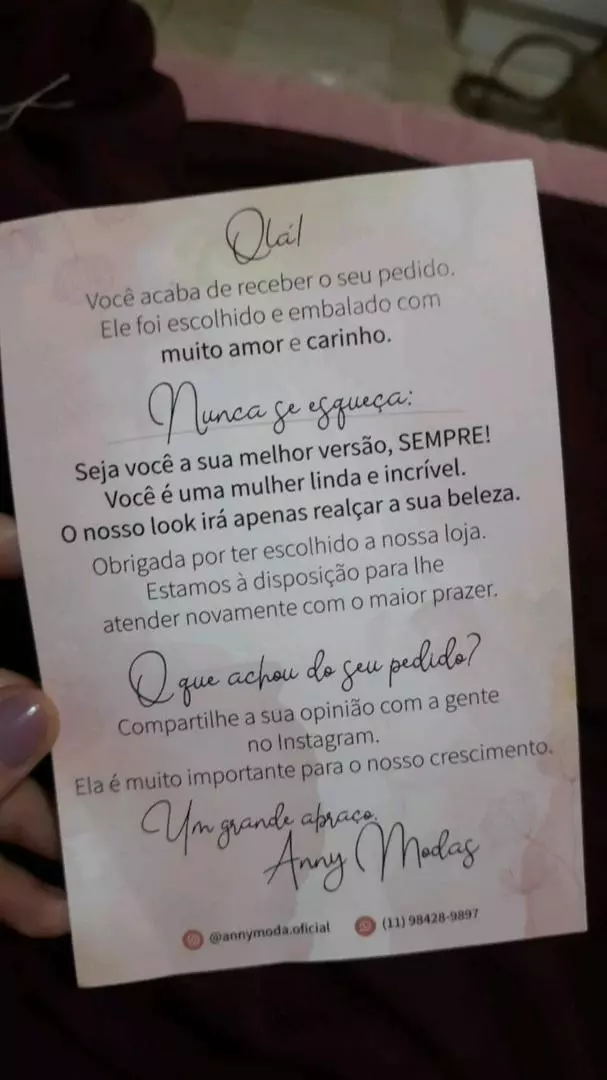 Olá!
Você acaba de receber o seu pedido.
Ele foi escolhido e embalado com
muito amor e carinho.
Nunca se esqueça:
Seja você a sua melhor versão, SEMPRE!
Você é uma mulher linda e incrível.
O nosso look irá apenas realçar a sua beleza.
Obrigada por ter escolhido a nossa loja.
Estamos à disposição para lhe
atender novamente com o maior prazer.
O que achou do seu pedido?
Compartilhe a sua opinião com a gente
no Instagram.
Ela é muito importante para o nosso crescimento.
Um grande abraço.
Anny Modas
@annymoda.oficial (11) 98428-9897